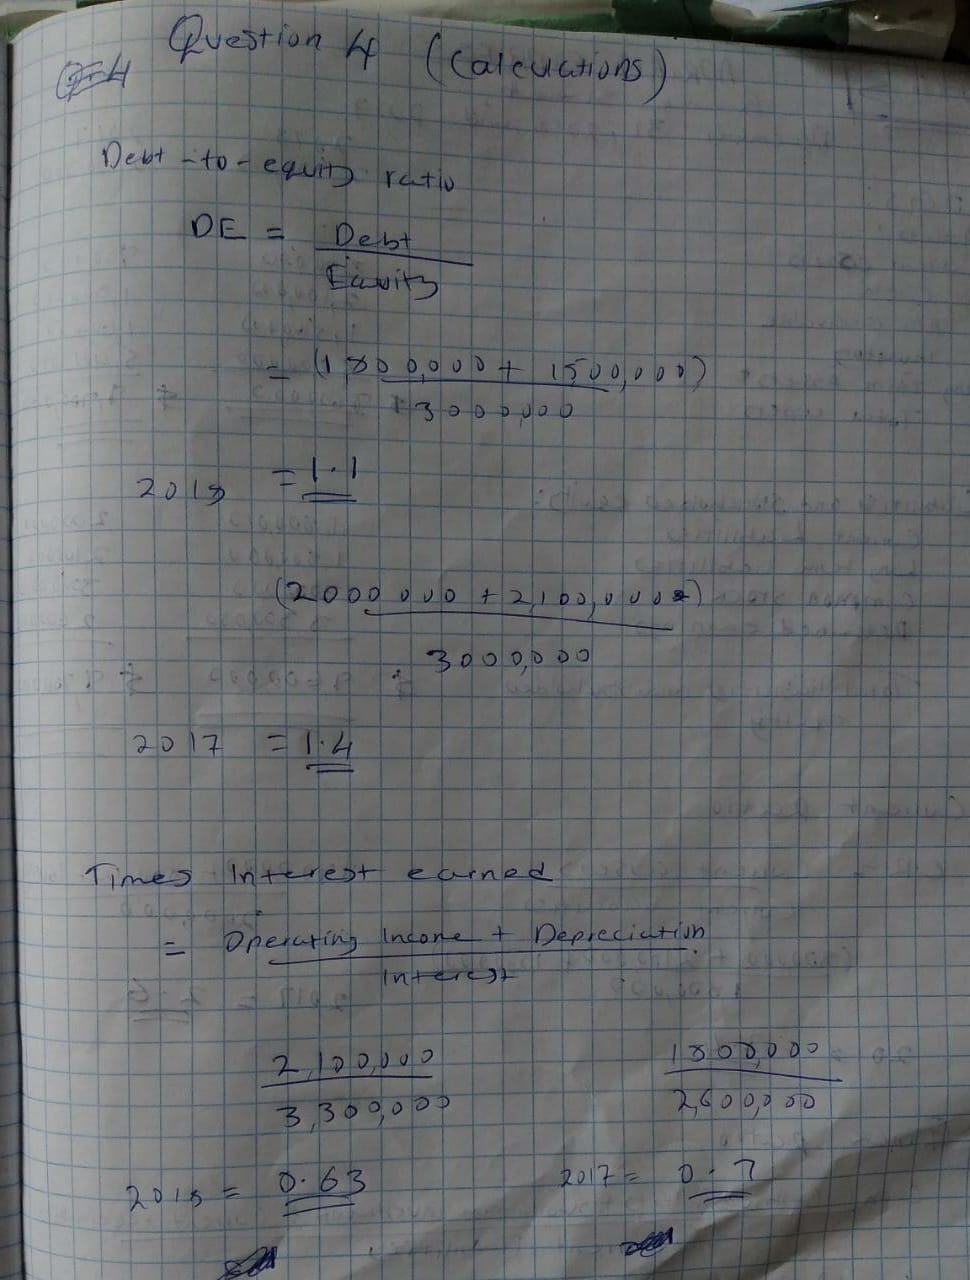 Question 4 (Calculations)
Q-4
Debt-to-equity ratio
DE = Debt
Equity
= (1800,000 + 1500,000)
3000,000
2018 = 1.1
(2000 000 + 2,100,000)
3000,000
2017 = 1.4
Times Interest earned
= Operating Income + Depreciation
Interest
2,100,000 1800,000
3,300,000 2,600,000
2018 = 0.63 2017 = 0.7